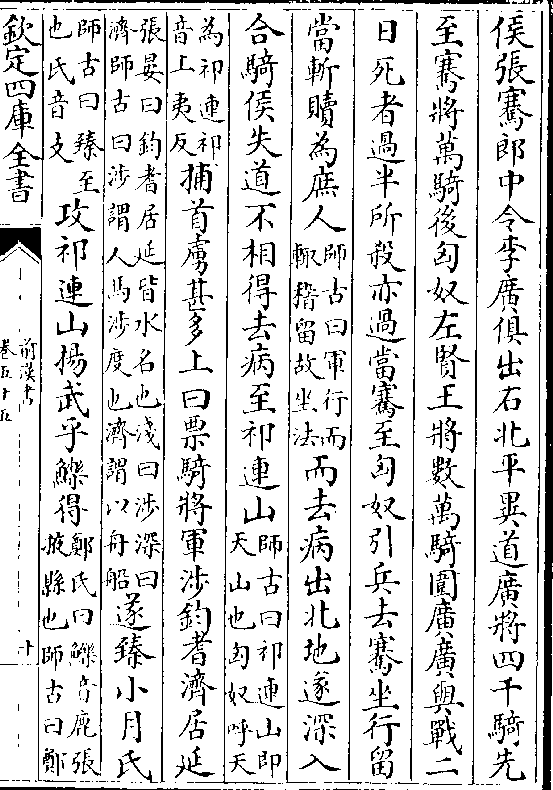 侯張騫郎中令李廣俱出右北平異道廣將四千騎先
至騫將萬騎後匈奴左賢王將數萬騎圍廣廣與戰二
日死者過半所殺亦過當騫至匈奴引兵去騫坐行留
當斬贖為庶人師古曰軍行而輒稽留故坐法而去病出北地遂深入
合騎侯失道不相得去病至祁連山師古曰祁連山即天山也匈奴呼天
為祁連祁音上夷反捕首虜甚多上曰票騎將軍涉鈞耆濟居延
張晏曰鈞耆居延皆水名也淺曰涉深曰濟師古曰涉謂人馬涉度也濟謂以舟船遂臻小月氏
師古曰臻至也氏音支攻祁連山揚武乎鱳得鄭氏曰鱳音鹿張掖縣也師古曰鄭
欽定四庫全書
前漢書
卷五十五
十